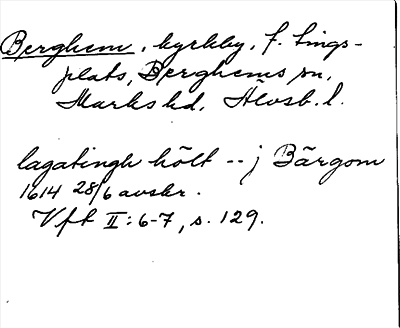 Berghem, kyrkby, f. tings-
plats, Berghems sn,
Marks hd, Älvsb. l.
lagatingh hölt -- j Bärgom
1614 28/6 avskr.
Vft II: 6-7, s. 129.